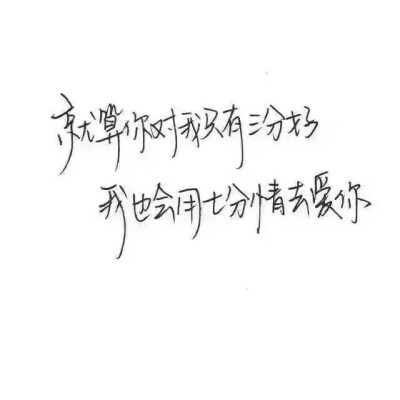 就算你对我只有三分好
我也会用七分情去爱你